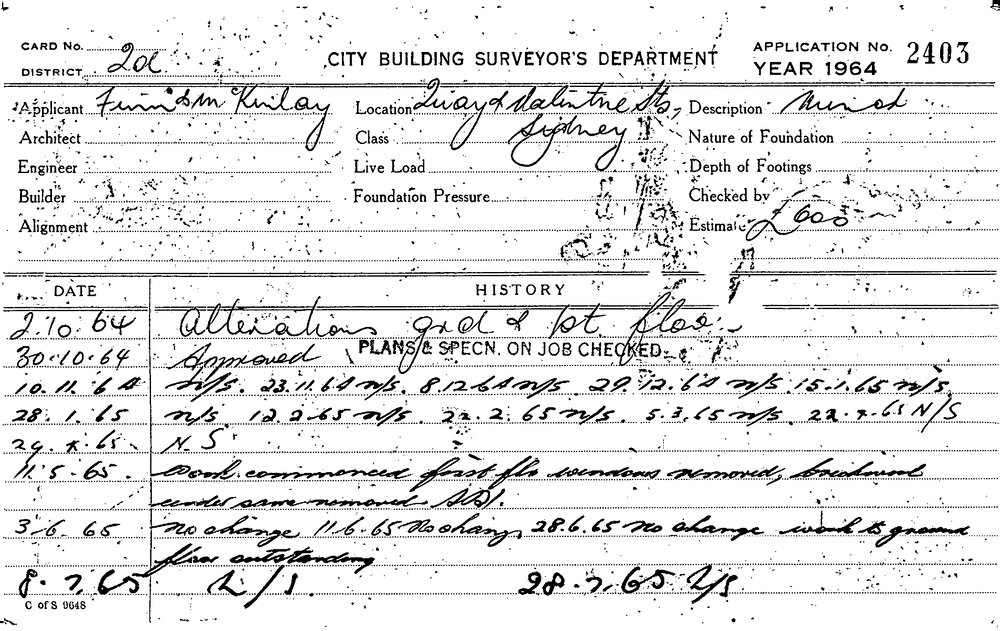 CARD No. 2a
DISTRICT
CITY BUILDING SURVEYOR'S DEPARTMENT
APPLICATION No. 2403
YEAR 1964
Applicant McKinlay
Location Quay & Sts,
Sydney
Description
Architect
Class
Nature of Foundation
Engineer
Live Load
Depth of Footings
Builder
Foundation Pressure
Checked by
Alignment
Estimate £600
DATE
HISTORY
2.10.64 Alterations grd & 1st floor
30.10.64 Approved PLANS & SPECN. ON JOB CHECKED.
10.11.64 n/s. 23.11.64 n/s. 8.12.64 n/s. 29.12.64 n/s. 15.1.65 n/s.
28.1.65 n/s 12.2.65 n/s. 22.2.65 n/s. 5.3.65 n/s. 65 N/S
N.S.
11.5.65. Work commenced first flr windows removed, brickwork
under same removed
3.6.65 No change 11.6.65 No change 28.6.65 No change work to ground
floor outstanding
8.7.65 n/s. 28.7.65 n/s
C of S 9648